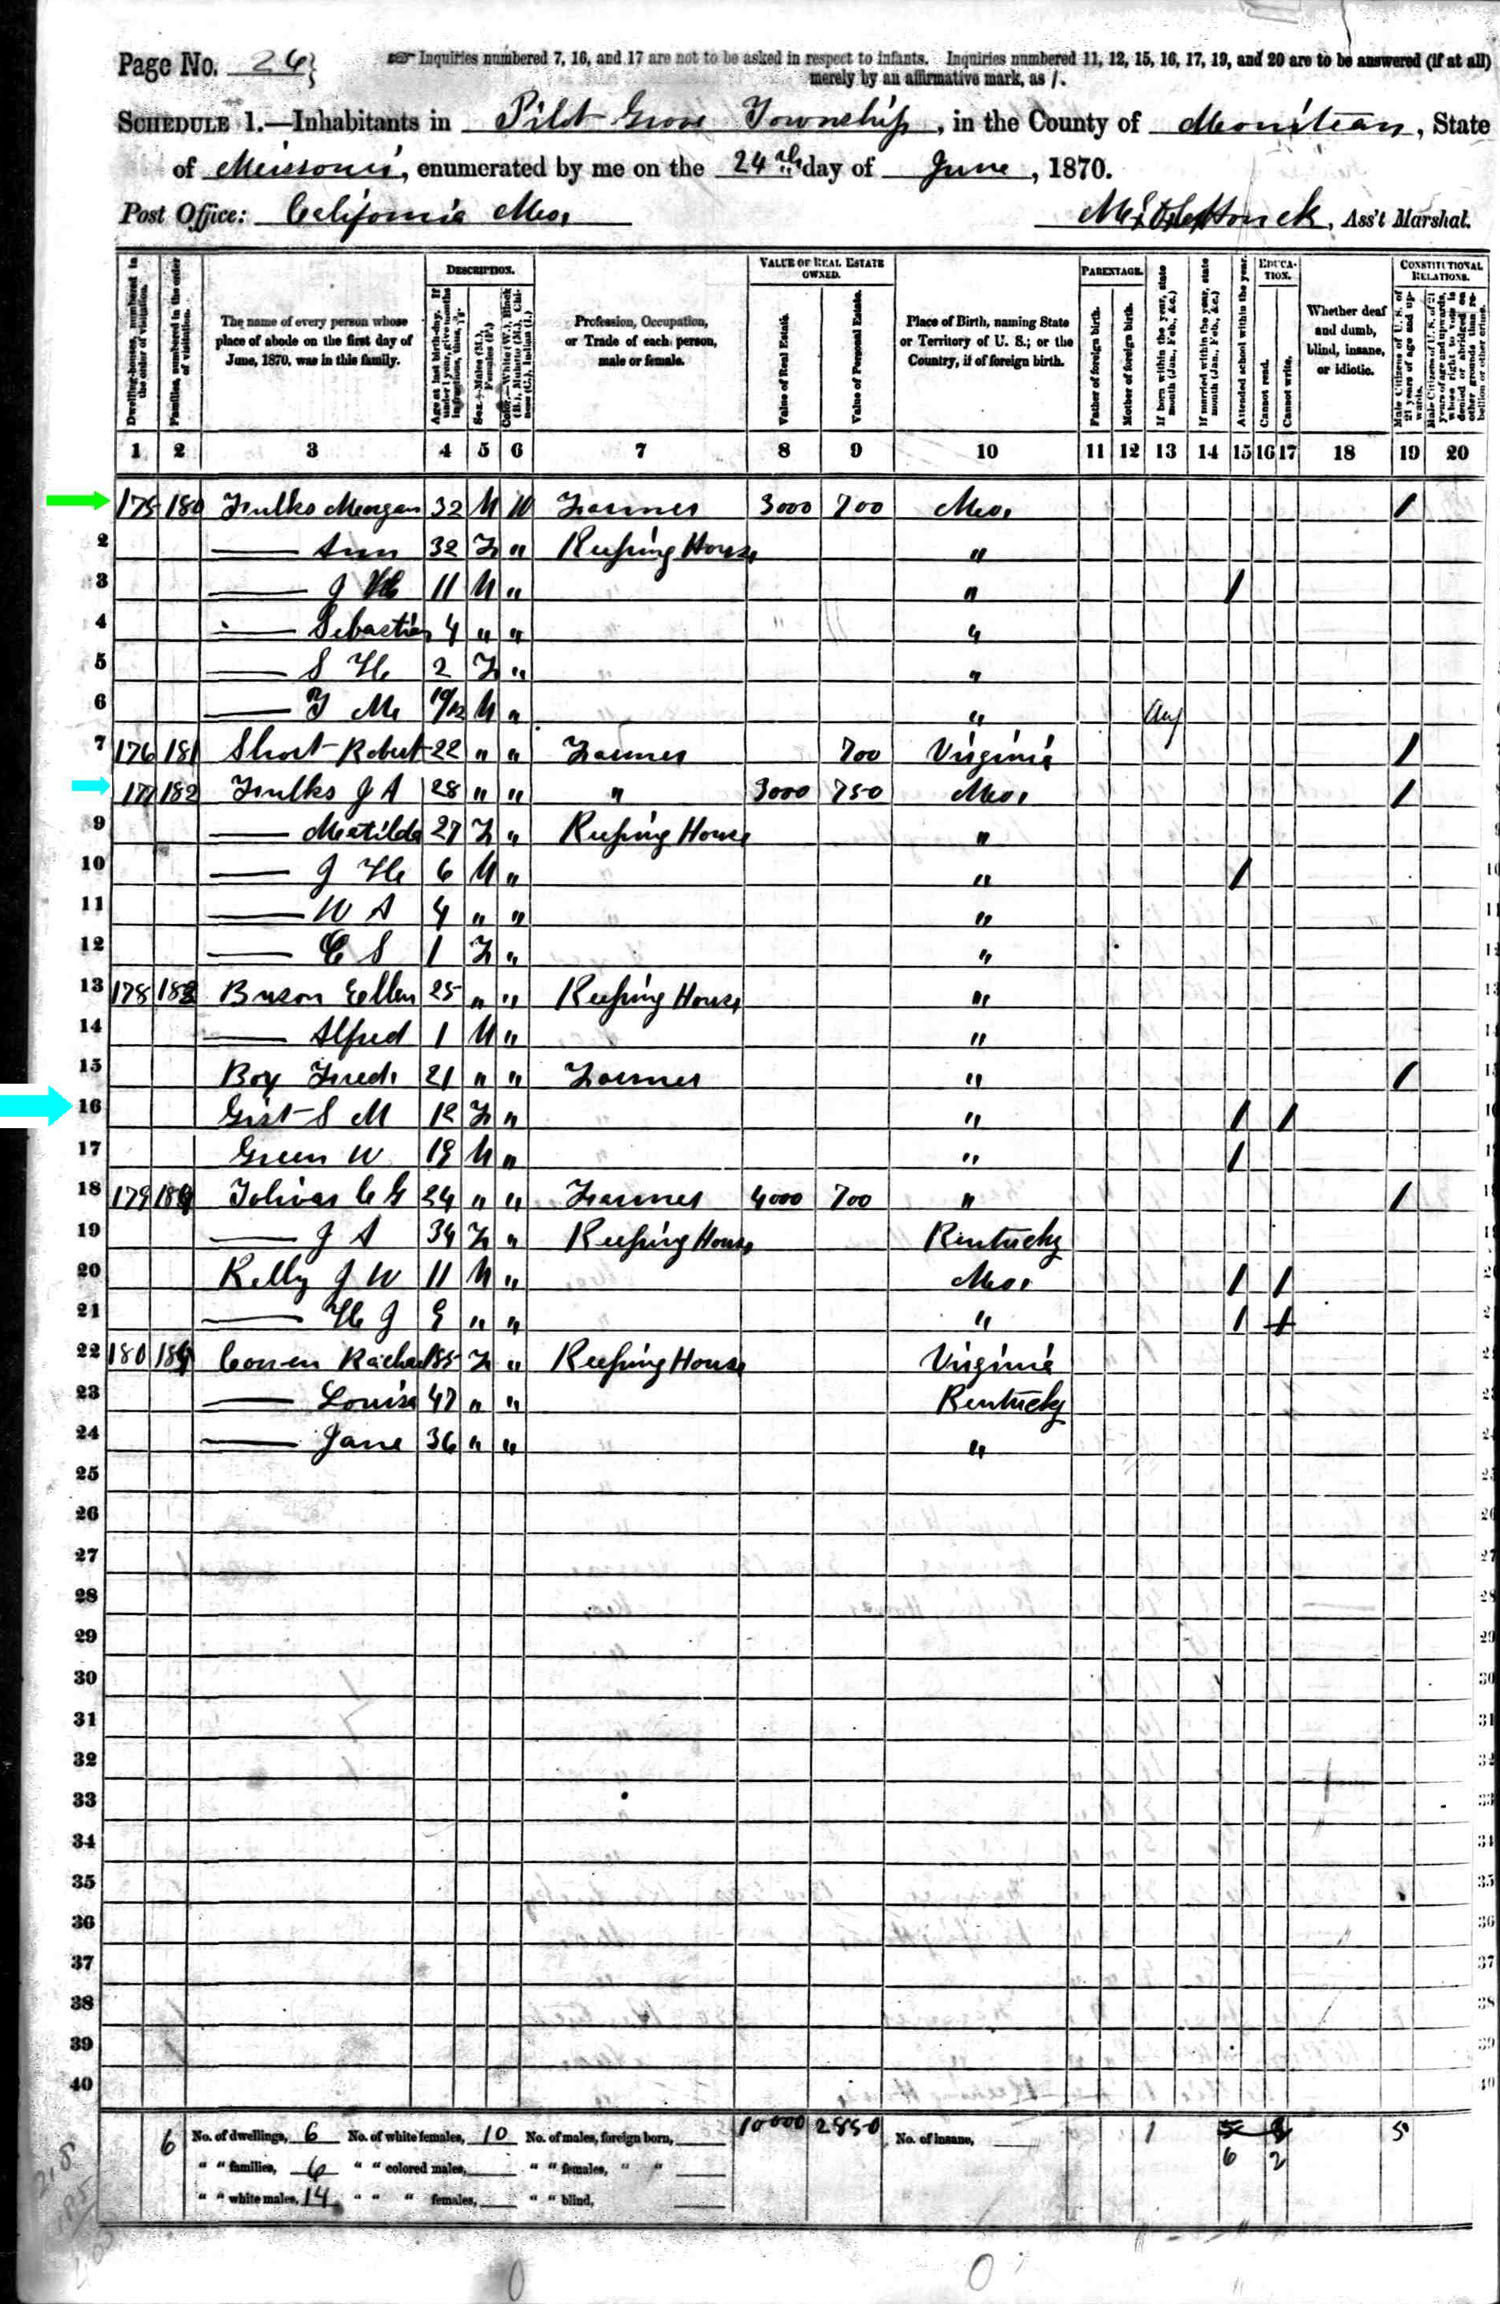 Page No. 26
Inquiries numbered 7, 16, and 17 are not to be asked in respect to infants. Inquiries numbered 11, 12, 15, 16, 17, 19, and 20 are to be answered (if at all)
merely by an affirmative mark, as /.
SCHEDULE 1.—Inhabitants in Pilot Grove Township, in the County of Moniteau, State
of Missouri, enumerated by me on the 24th day of June, 1870.
Post Office: California Mo. , Ass't Marshal.
Dwelling-houses, numbered in the order of visitation.
Families, numbered in the order of visitation.
The name of every person whose place of abode on the first day of June, 1870, was in this family.
DESCRIPTION.
Age at last birth-day. If under 1 year, give months in fractions, thus, 3/12
Sex.—Males (M.), Females (F.)
Color.—White (W.), Black (B.), Mulatto (M.), Chinese (C.), Indian (I.)
Profession, Occupation, or Trade of each person, male or female.
VALUE OF REAL ESTATE OWNED.
Value of Real Estate.
Value of Personal Estate.
Place of Birth, naming State or Territory of U. S.; or the Country, if of foreign birth.
PARENTAGE.
Father of foreign birth.
Mother of foreign birth.
If born within the year, state month (Jan., Feb., &c.)
If married within the year, state month (Jan., Feb., &c.)
Attended school within the year.
EDUCATION.
Cannot read.
Cannot write.
Whether deaf and dumb, blind, insane, or idiotic.
CONSTITUTIONAL RELATIONS.
Male Citizens of U. S. of 21 years of age and upwards.
Male Citizens of U. S. of 21 years of age and upwards, whose right to vote is denied or abridged on other grounds than rebellion or other crime.
1 2 3 4 5 6 7 8 9 10 11 12 13 14 15 16 17 18 19 20
175 180 Fulks Morgan 32 M W Farmer 3000 700 Mo. /
2 — Ann 32 F " Keeping House "
3 — J 11 M " " /
4 — Sebastian 4 " " "
5 — S H 2 F " "
6 — T M 10/12 M " " Aug
7 176 181 Short Robert 22 " " Farmer 700 Virginia /
177 182 Fulks J A 28 " " " 3000 750 Mo. /
9 — Matilda 27 F " Keeping House "
10 — J H 6 M " " /
11 — W A 4 " " "
12 — C S 1 F " "
13 178 183 Buson Ellen 25 " " Keeping House "
14 — Alfred 1 M " "
15 Boy Fred 21 " " Farmer " /
16 Gist S M 12 F " " / /
17 Green W 19 M " " /
18 179 184 Tolivar C G 24 " " Farmer 4000 700 " /
19 — J A 34 F " Keeping House Kentucky
20 Kelly J W 11 M " Mo. / /
21 — H J 9 " " " / /
22 180 Rachel 85 F " Keeping House Virginia
23 — Louisa 47 " " Kentucky
24 — Jane 36 " " "
25
26
27
28
29
30
31
32
33
34
35
36
37
38
39
40
6 No. of dwellings, 6 No. of white females, 10 No. of males, foreign born, 10000 2850 No. of insane, 1 6 2 5
" " families, 6 " " colored males, " " females, " "
" " white males, 14 " " " females, " " blind,